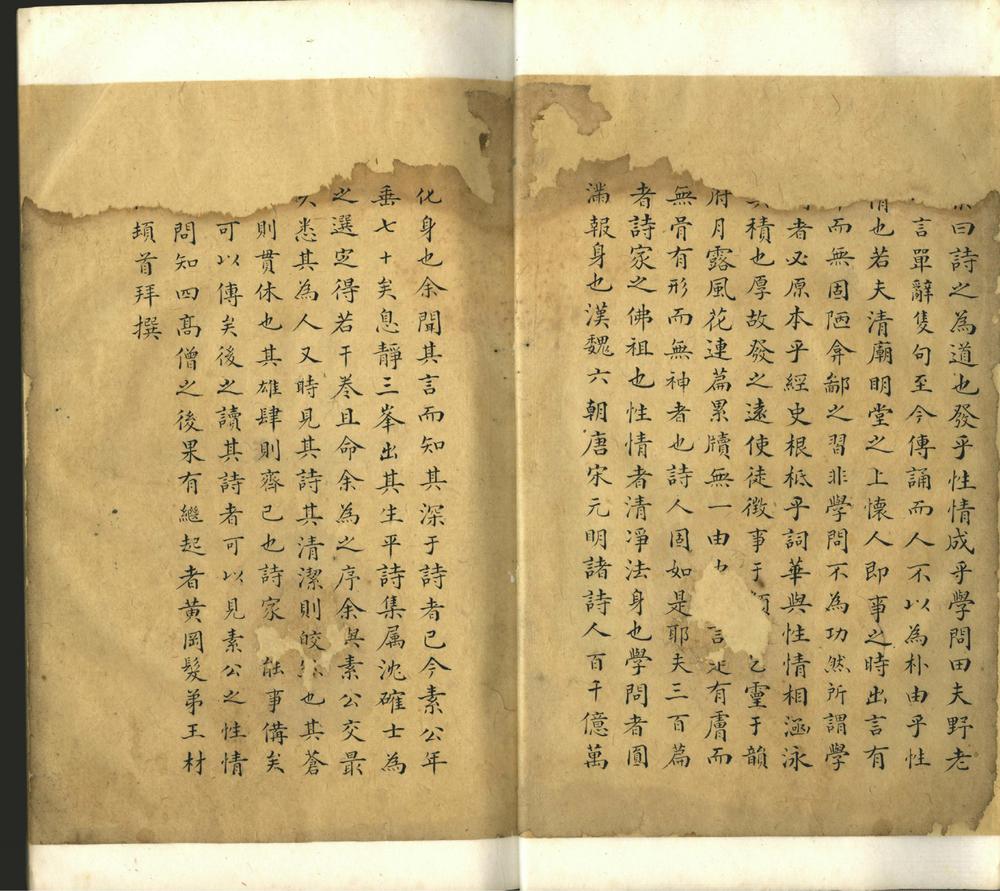 曰詩之為道也發乎性情成乎學問田夫野老
言單辭隻句至今傳誦而人不以為朴由乎性
情也若夫清廟明堂之上懷人即事之時出言有
而無固陋弇鄙之習非學問不為功然所謂學
者必原本乎經史根柢乎詞華與性情相涵泳
積也厚故發之遠使徒徵事于 靈于韻
府月露風花連篇累牘無一由 言是有膚而
無骨有形而無神者也詩人固如是耶夫三百篇
者詩家之佛祖也性情者清淨法身也學問者圓
滿報身也漢魏六朝唐宋元明諸詩人百千億萬
化身也余聞其言而知其深于詩者已今素公年
垂七十矣息靜三峯出其生平詩集属沈確士為
之選定得若干卷且命余為之序余與素公交最
悉其為人又時見其詩其清潔則皎 也其蒼
則貫休也其雄肆則齊己也詩家 能事備矣
可以傳矣後之讀其詩者可以見素公之性情
問知四高僧之後果有繼起者黄岡髮弟王材
頓首拜撰